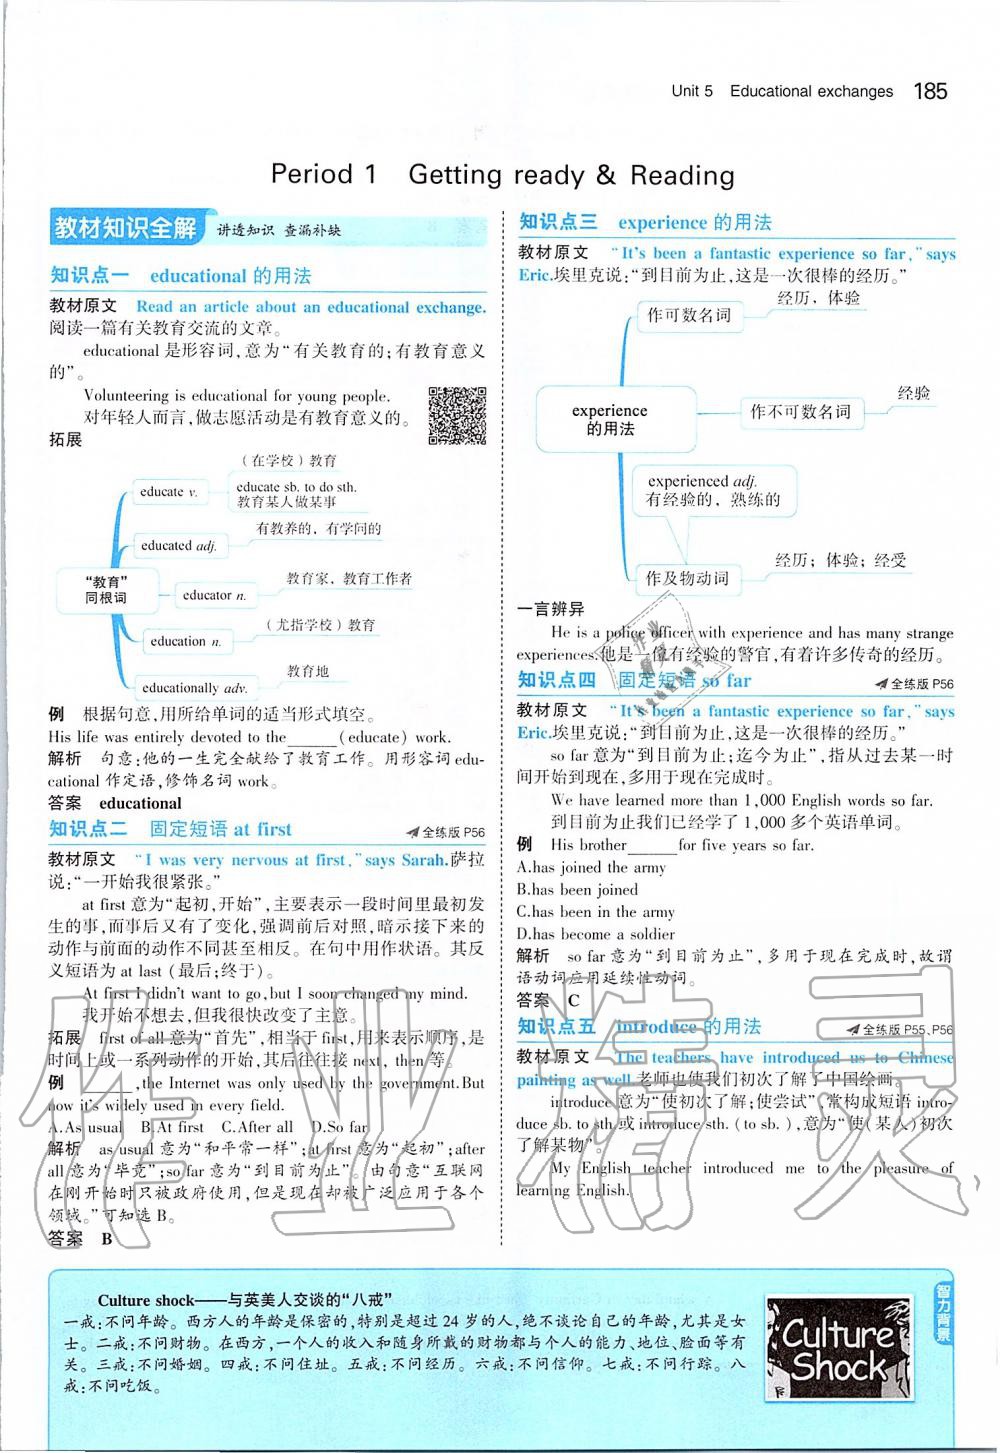 Unit 5 Educational exchanges 185
Period 1 Getting ready & Reading
教材知识全解 讲透知识 查漏补缺
知识点一 educational 的用法
教材原文 Read an article about an educational exchange.
阅读一篇有关教育交流的文章。
educational 是形容词,意为“有关教育的;有教育意义
的”。
Volunteering is educational for young people.
对年轻人而言,做志愿活动是有教育意义的。
拓展
“教育”
同根词
educate v.
(在学校)教育
educate sb. to do sth.
教育某人做某事
educated adj.
有教养的,有学问的
educator n.
教育家,教育工作者
education n.
(尤指学校)教育
educationally adv.
教育地
例 根据句意,用所给单词的适当形式填空。
His life was entirely devoted to the______(educate) work.
解析 句意:他的一生完全献给了教育工作。用形容词edu-
cational 作定语,修饰名词 work。
答案 educational
知识点二 固定短语 at first 全练版 P56
教材原文 “I was very nervous at first,”says Sarah.萨拉
说:“一开始我很紧张。”
at first 意为“起初,开始”,主要表示一段时间里最初发
生的事,而事后又有了变化,强调前后对照,暗示接下来的
动作与前面的动作不同甚至相反。在句中用作状语。其反
义短语为 at last (最后;终于)。
At first I didn't want to go,but I soon changed my mind.
我开始不想去,但我很快改变了主意。
拓展 first of all 意为“首先”,相当于 first,用来表示顺序,是
时间上或一系列动作的开始,其后往往接 next, then 等。
例 ______,the Internet was only used by the government.But
now it's widely used in every field.
A.As usual B.At first C.After all D.So far
解析 as usual 意为“和平常一样”;at first 意为“起初”;after
all 意为“毕竟”;so far 意为“到目前为止”。由句意“互联网
在刚开始时只被政府使用,但是现在却被广泛应用于各个
领域。”可知选 B。
答案 B
知识点三 experience 的用法
教材原文 “It's been a fantastic experience so far,”says
Eric.埃里克说:“到目前为止,这是一次很棒的经历。”
experience
的用法
作可数名词
经历,体验
作不可数名词
经验
experienced adj.
有经验的,熟练的
作及物动词
经历;体验;经受
一言辨异
He is a police officer with experience and has many strange
experiences.他是一位有经验的警官,有着许多传奇的经历。
知识点四 固定短语 so far 全练版 P56
教材原文 “It's been a fantastic experience so far,”says
Eric.埃里克说:“到目前为止,这是一次很棒的经历。”
so far 意为“到目前为止;迄今为止”,指从过去某一时
间开始到现在,多用于现在完成时。
We have learned more than 1,000 English words so far.
到目前为止我们已经学了 1,000 多个英语单词。
例 His brother______for five years so far.
A.has joined the army
B.has been joined
C.has been in the army
D.has become a soldier
解析 so far 意为“到目前为止”,多用于现在完成时,故谓
语动词应用延续性动词。
答案 C
知识点五 introduce 的用法 全练版 P55、P56
教材原文 The teachers have introduced us to Chinese
painting as well.老师也使我们初次了解了中国绘画。
introduce 意为“使初次了解;使尝试”,常构成短语 intro-
duce sb. to sth.或 introduce sth. (to sb.),意为“使(某人)初次
了解某物”。
My English teacher introduced me to the pleasure of
learning English.
Culture shock——与英美人交谈的“八戒”
一戒:不问年龄。西方人的年龄是保密的,特别是超过 24 岁的人,绝不谈论自己的年龄,尤其是女
士。二戒:不问财物。在西方,一个人的收入和随身所戴的财物都与个人的能力、地位、脸面等有
关。三戒:不问婚姻。四戒:不问住址。五戒:不问经历。六戒:不问信仰。七戒:不问行踪。八
戒:不问吃饭。
智力背景
Culture
Shock
作业精灵